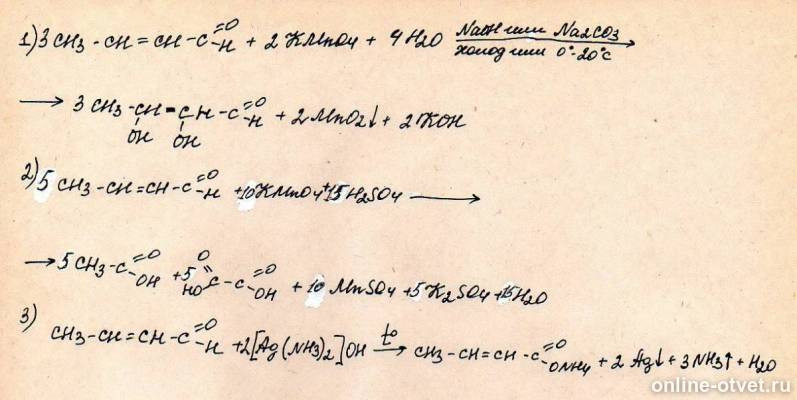 1) 3CH3 - CH = CH - C =O -H + 2 KMnO4 + 4 H2O NaOH или Na2CO3 холод или 0°-20°C →
→ 3 CH3 - CH - CH - C =O -H + 2 MnO2↓ + 2 KOH
OH OH
2) 5 CH3 - CH = CH - C =O -H + 10 KMnO4 + 15 H2SO4 →
→ 5 CH3 - C =O -OH + 5 O = C - C =O -OH HO + 10 MnSO4 + 5 K2SO4 + 15 H2O
3) CH3 - CH = CH - C =O -H + 2 [Ag(NH3)2] OH t° → CH3 - CH = CH - C =O -ONH4 + 2 Ag↓ + 3 NH3↑ + H2O
online-otvet.ru